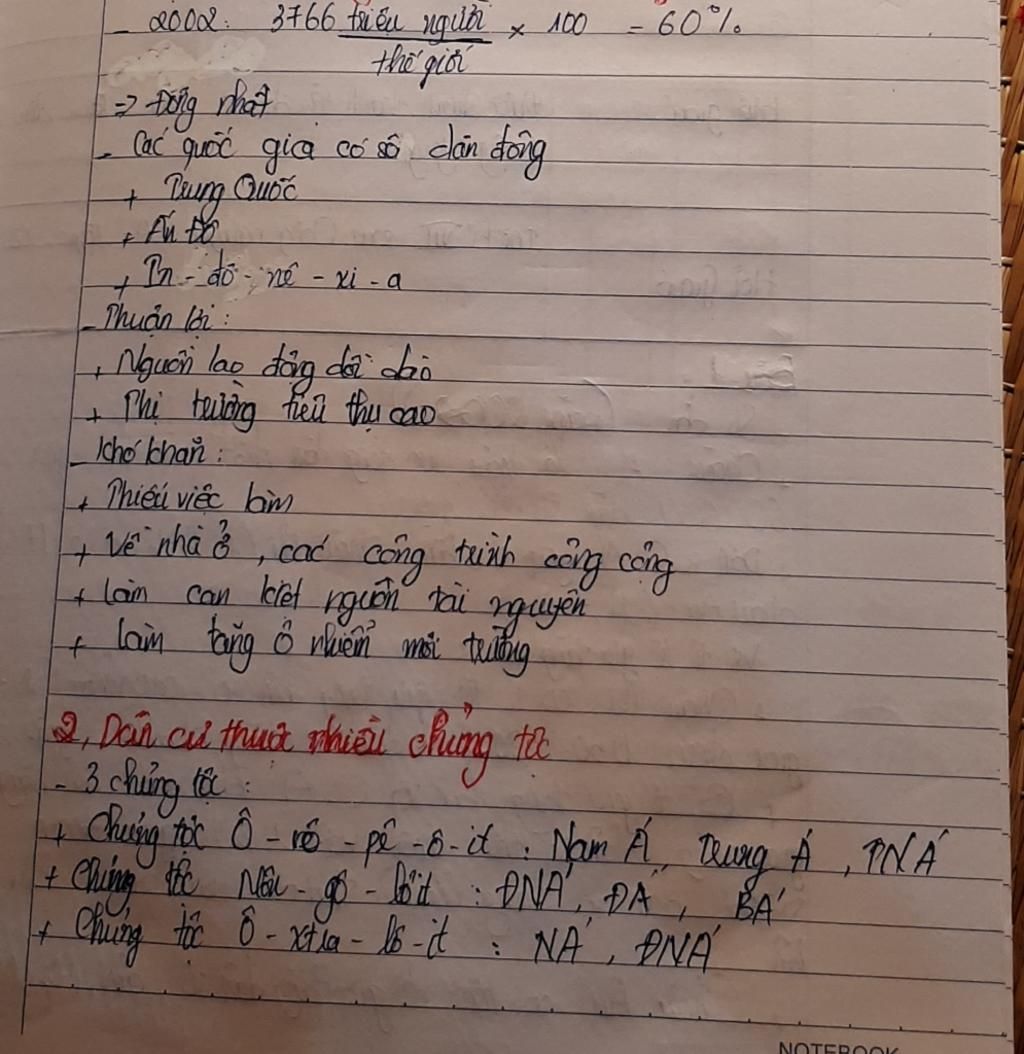 - 2002: 3766 triệu người × 100 = 60%
thế giới
=> Đông nhất
- Các quốc gia có số dân đông
+ Trung Quốc
+ Ấn Độ
+ In - đô - nê - xi - a
- Thuận lợi :
+ Nguồn lao động dồi dào
+ Thị trường tiêu thụ cao
- Khó khăn :
+ Thiếu việc làm
+ Về nhà ở, các công trình công cộng
+ Làm cạn kiệt nguồn tài nguyên
+ Làm tăng ô nhiễm môi trường
2, Dân cư thuộc nhiều chủng tộc
- 3 chủng tộc :
+ Chủng tộc Ô - rô - pê - ô - it : Nam Á, Trung Á, TNÁ
+ Chủng tộc Môn - gô - lôit : ĐNÁ, ĐÁ, BÁ
+ Chủng tộc Ô - xtra - lô - it : NÁ, ĐNÁ
NOTEBOOK